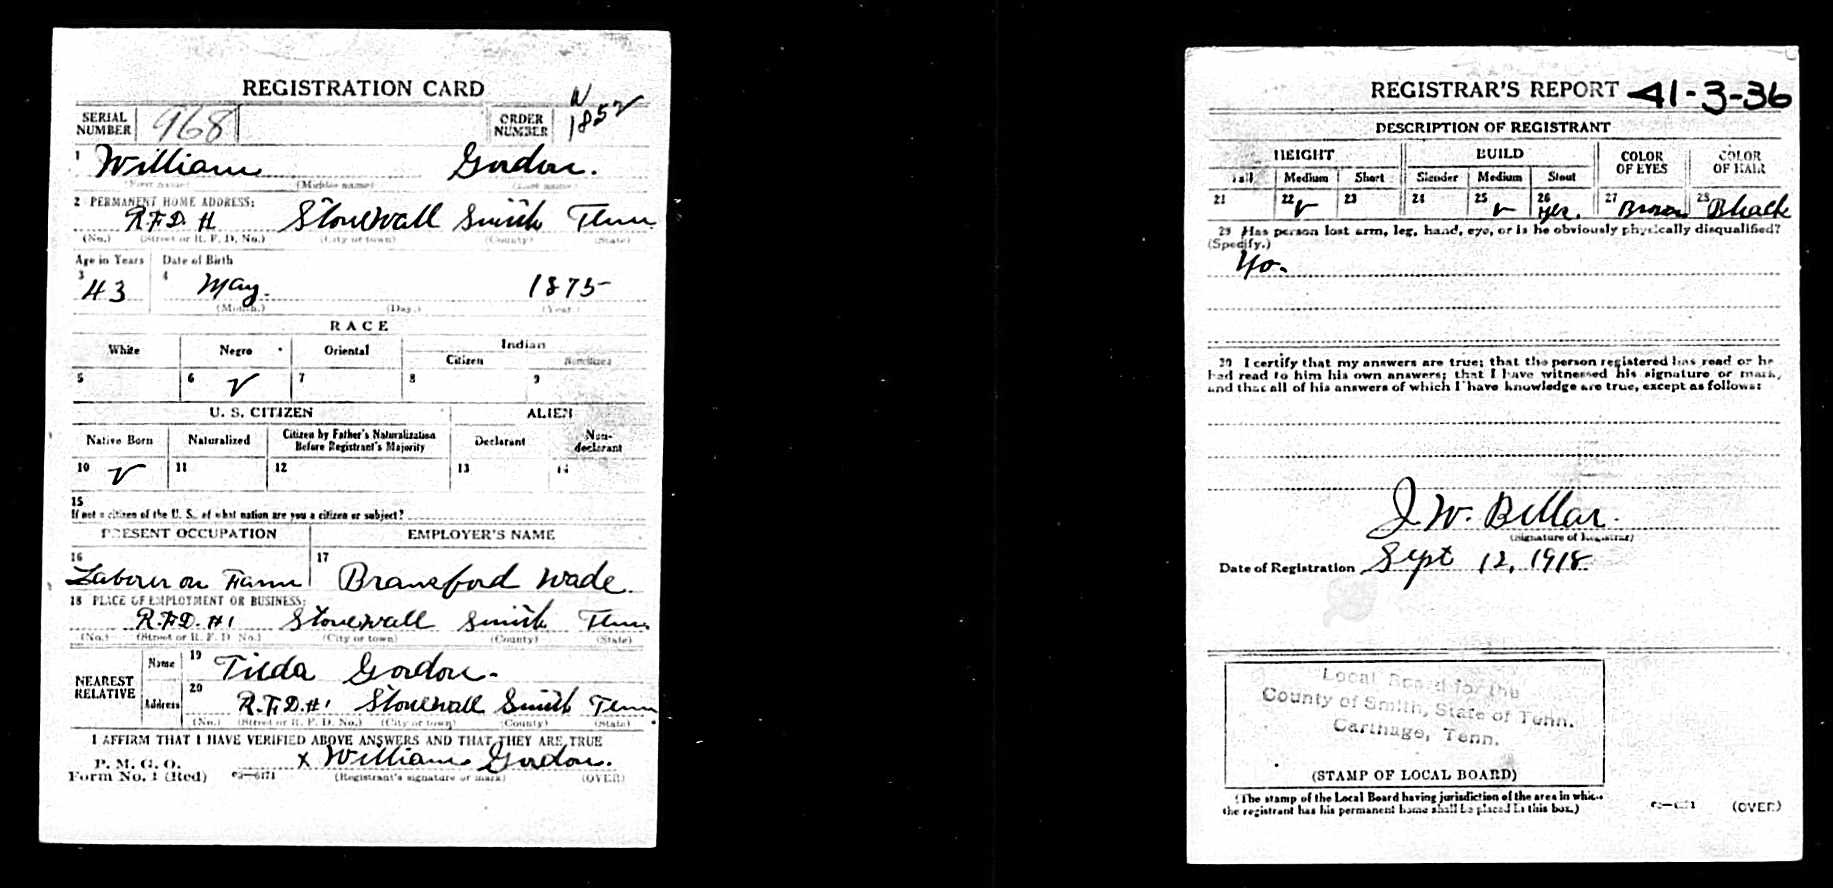 REGISTRATION CARD
SERIAL NUMBER 968 ORDER NUMBER N 1852
1 William Gordon.
(First name) (Middle name) (Last name)
2 PERMANENT HOME ADDRESS:
R.F.D. # Stonewall Smith Tenn
(No.) (Street or R. F. D. No.) (City or town) (County) (State)
Age in Years Date of Birth
3 43 4 May. 1875
(Month.) (Day.) (Year.)
RACE
White Negro Oriental Indian
Citizen Noncitizen
5 6 ✓ 7 8 9
U. S. CITIZEN ALIEN
Native Born Naturalized Citizen by Father's Naturalization Before Registrant's Majority Declarant Non-declarant
10 ✓ 11 12 13 14
15
If not a citizen of the U. S., of what nation are you a citizen or subject?
PRESENT OCCUPATION EMPLOYER'S NAME
16 17
Laborer on Farm Bransford Wade.
18 PLACE OF EMPLOYMENT OR BUSINESS:
R.F.D. #1 Stonewall Smith Tenn
(No.) (Street or R. F. D. No.) (City or town) (County) (State)
NEAREST RELATIVE Name 19 Tilda Gordon.
Address 20 R.F.D. #1 Stonewall Smith Tenn
(No.) (Street or R. F. D. No.) (City or town) (County) (State)
I AFFIRM THAT I HAVE VERIFIED ABOVE ANSWERS AND THAT THEY ARE TRUE
P. M. G. O.
Form No. 1 (Red) 03—6171 x William Gordon.
(Registrant's signature or mark) (OVER)
REGISTRAR'S REPORT 41-3-36
DESCRIPTION OF REGISTRANT
HEIGHT BUILD COLOR OF EYES COLOR OF HAIR
Tall Medium Short Slender Medium Stout
21 22 ✓ 23 24 25 ✓ 26 yes. 27 Brown 28 Black
29 Has person lost arm, leg, hand, eye, or is he obviously physically disqualified?
(Specify.)
No.
30 I certify that my answers are true; that the person registered has read or he
had read to him his own answers; that I have witnessed his signature or mark,
and that all of his answers of which I have knowledge are true, except as follows:
J. W. Bellar.
(Signature of Registrar)
Date of Registration Sept 12, 1918
Local Board for the
County of Smith, State of Tenn.
Carthage, Tenn.
(STAMP OF LOCAL BOARD)
(The stamp of the Local Board having jurisdiction of the area in which
the registrant has his permanent home shall be placed in this box.)
03—6171 (OVER)